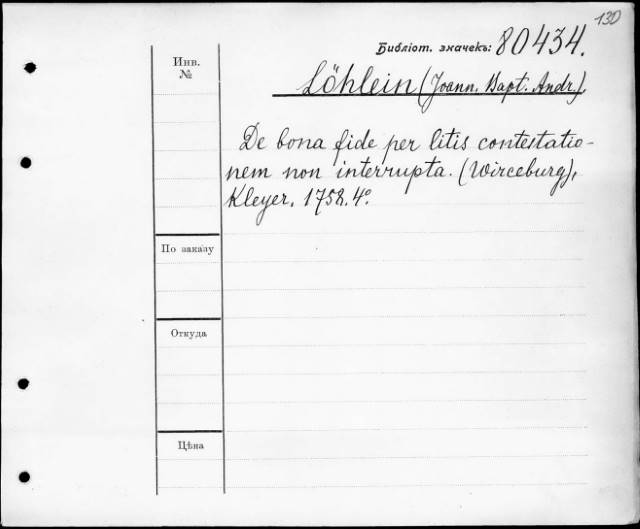 130
Библіот. значекъ: 80434.
Инв.
№
Löhlein (Joann. Bapt. Andr.)
De bona fide per litis contestatio-
nem non interrupta. (Wirceburg),
Kleyer, 1758. 4°.
По заказу
Откуда
Цѣна